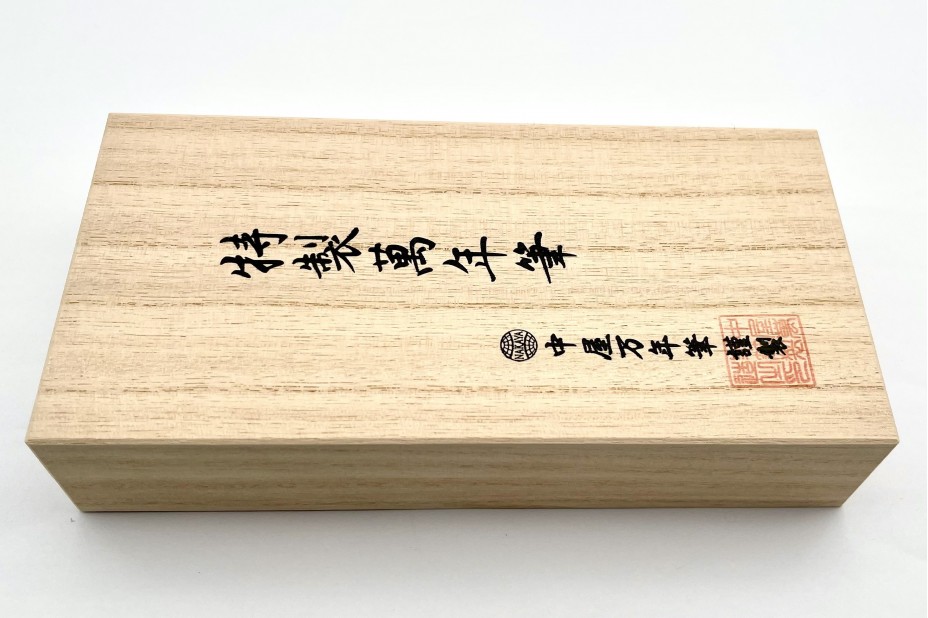 特製萬年筆
NAKAYA 中屋万年筆 謹製